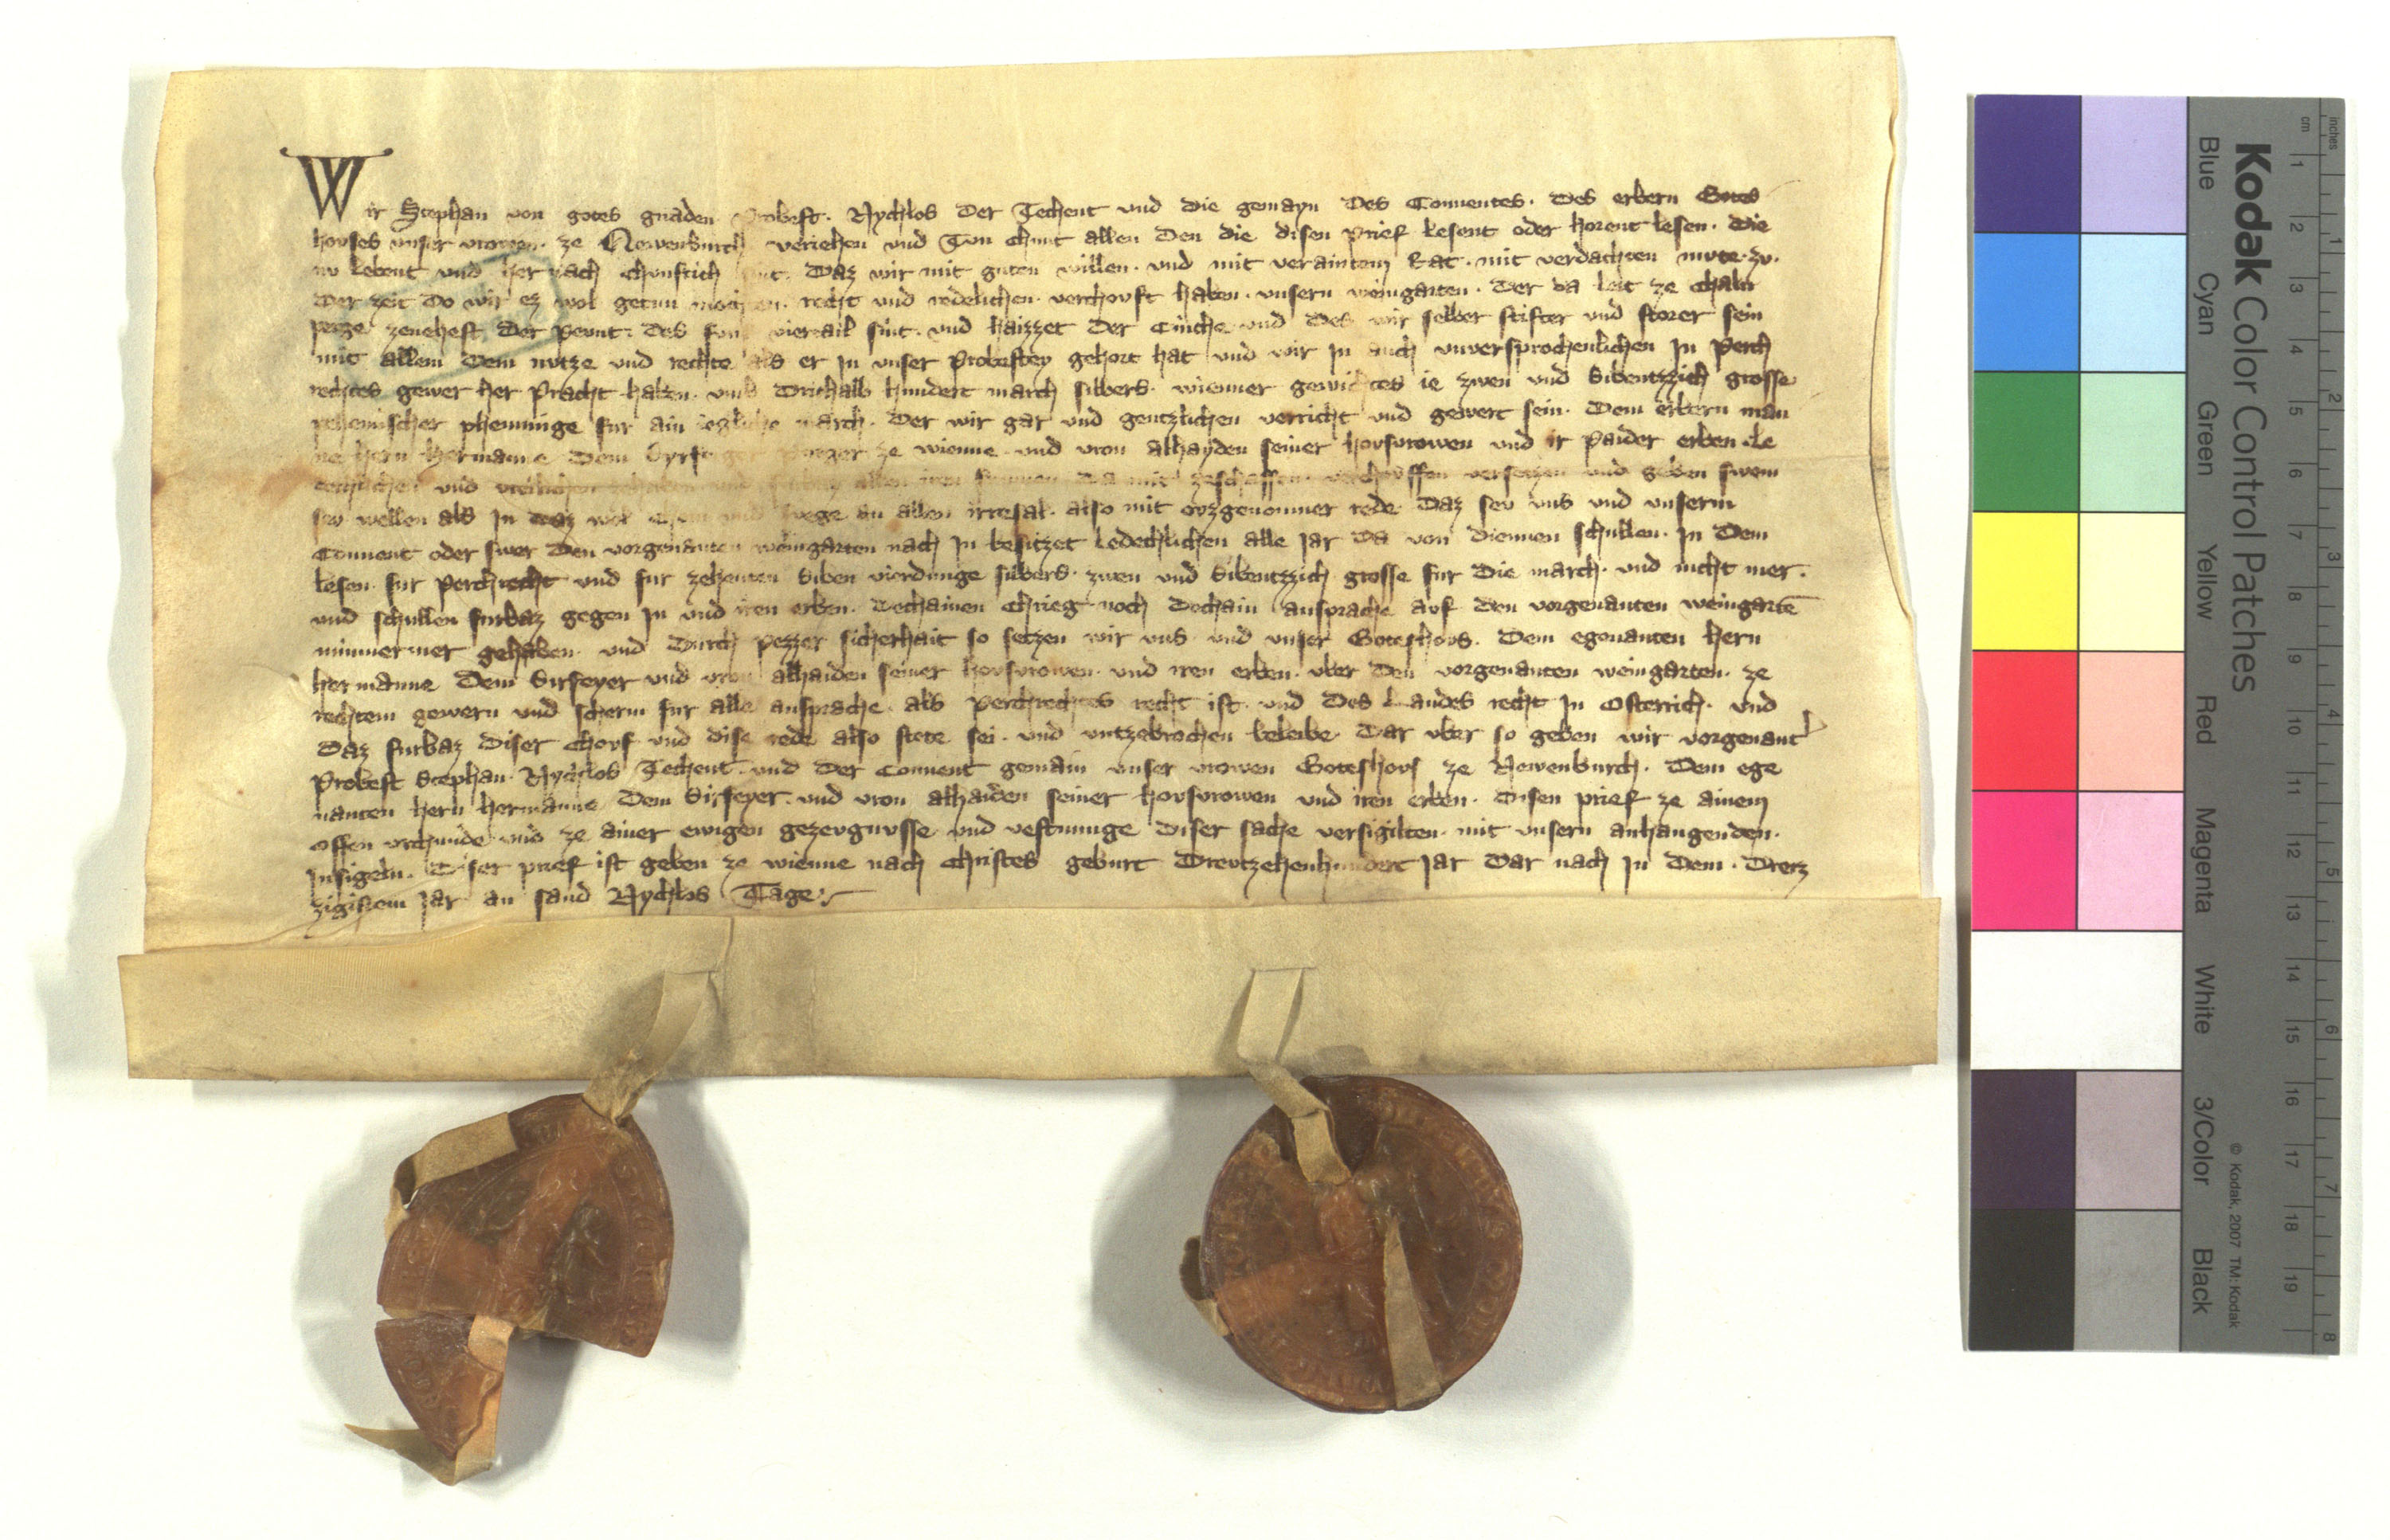 Wir Stephan von gotes gnaden Probest. Nychlos der Techent vnd die gemayn des Conuentes. des erbern Gotes
hovses vnser vrowen. ze Newenburch veriehen vnd Tun chunt allen den die disen prief lesent oder horent lesen. die
nv lebent vnd her nach chunftich sint. Daz wir mit guten willen. vnd mit veraintem Rat. mit verdachten mvte. zv.
der zeit do wir ez wol getun mochten. recht vnd redelichen. verchovft haben. vnsern weingarten. der da leit ze Chaln
perge zenehest der pevnt. des funf viertail sint. vnd haizzet der Chuche vnd des wir selber stifter vnd storer sein
mit allem dem nvtze vnd rechte als er in vnser Probestey gehort hat vnd wir in auch vnversprochenlichen in perch
rechtes gewer her pracht haben. vmb Drithalb hundert march silbers. wienner gewichtes ie zwen vnd Sibentzzich grosse
pehemischer phenninge fur ain iegliche march. Der wir gar vnd gentzlichen verricht vnd gewert sein. Dem erbern man
ne hern hermanne dem Syrfeyer purger ze wienne vnd vron alhayden seiner hovsvrowen vnd ir paider erben. le
dechlichen vnd vreilichen zehaben vnd allen iren frumen da mit zeschaffen. verchovffen versetzen vnd geben swem
sev wellen als in daz wol chom vnd fvege an allen irresal. also mit ovzgenomner rede Daz sev vns vnd vnserm
Conuent oder swer den vorgenanten weingarten nach in besitzet ledechlichen alle jar da von diennen schullen. in dem
lesen. fur perchrecht vnd fur zehenten Siben vierdunge silbers. zwen vnd Sibentzzich grosse fur die march. vnd nicht mer.
vnd schullen furbaz gegen in vnd iren erben. dechainen Chrieg noch dechain ansprache avf den vorgenanten weingartē
nimmermer gehaben. vnd Durch pezzer sicherhait so setzen wir vns vnd vnser Goteshovs. dem egenanten hern
hermanne dem Sirfeyer vnd vron alhaiden seiner hovsvrowen. vnd iren erben. vber den vorgenanten weingarten. ze
rechtem gewern vnd scherm fur alle ansprache. als perchrechtes recht ist. vnd des Landes recht in Osterrich. vnd
Daz furbaz diser Chovf vnd dise rede also stete sei. vnd vntzebrochen beleibe. Dar vber so geben wir vorgenant
Probest Stephan. Nychlos Techent. vnd der Conuent gemain vnser vrowen Goteshovs ze Newenburch. Dem ege
nanten hern hermanne dem Sirfeyer. vnd vron alhaiden seiner hovsvrowen vnd iren erben. Disen prief ze ainem
offen vrchunde vnd ze ainer ewigen gezevgnvsse vnd vestnunge diser sache versigilten. mit vnsern anhangenden.
Insigeln. Diser prief ist geben ze wienne nach Christes geburt Drevtzehenhundert jar Dar nach in dem. Drez
zigistem jar an sand Nychlos Tage
Kodak Color Control Patches
© Kodak, 2007 TM: Kodak
Blue Cyan Green Yellow Red Magenta White 3/Color Black
cm 1 2 3 4 5 6 7 8 9 10 11 12 13 14 15 16 17 18 19
inches 1 2 3 4 5 6 7 8